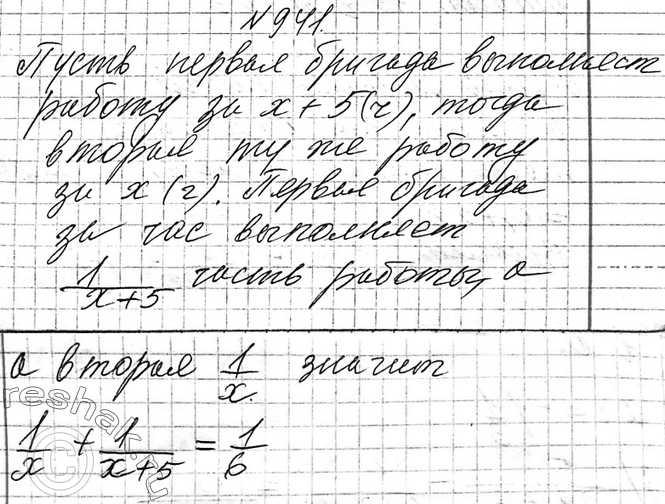 №941.
Пусть первая бригада выполняет
работу за x+5(ч), тогда
вторая ту же работу
за x (ч). Первая бригада
за час выполняет
1/(x+5) часть работы, а
а вторая 1/x. значит
1/x + 1/(x+5) = 1/6
reshak.ru